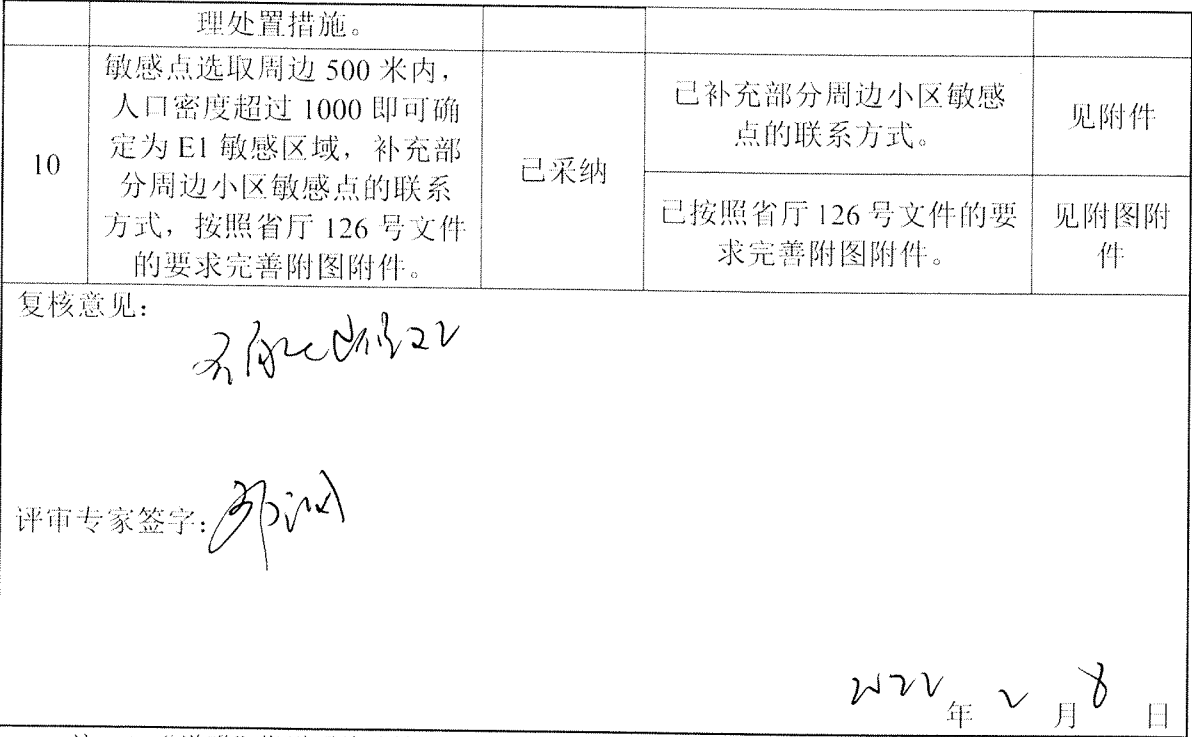 理处置措施。
10
敏感点选取周边 500 米内，
人口密度超过 1000 即可确
定为 E1 敏感区域，补充部
分周边小区敏感点的联系
方式，按照省厅 126 号文件
的要求完善附图附件。
已采纳
已补充部分周边小区敏感
点的联系方式。
见附件
已按照省厅 126 号文件的要
求完善附图附件。
见附图附
件
复核意见：
评审专家签字：
2022 年 2 月 8 日